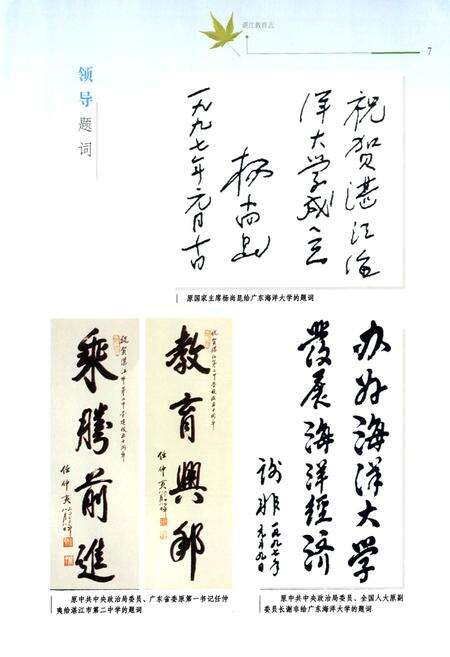 湛江教育志
7
领导题词
祝贺湛江海
洋大学成立
杨尚昆
一九九七年元月十日
原国家主席杨尚昆给广东海洋大学的题词
教育興邦
祝贺湛江市第二中学建校五十周年
任仲夷
乘勝前進
祝贺湛江市第二中学建校五十周年
任仲夷
原中共中央政治局委员、广东省委原第一书记任仲
夷给湛江市第二中学的题词
办好海洋大学
發展海洋經济
谢非
一九九七年
元月九日
原中共中央政治局委员、全国人大原副
委员长谢非给广东海洋大学的题词